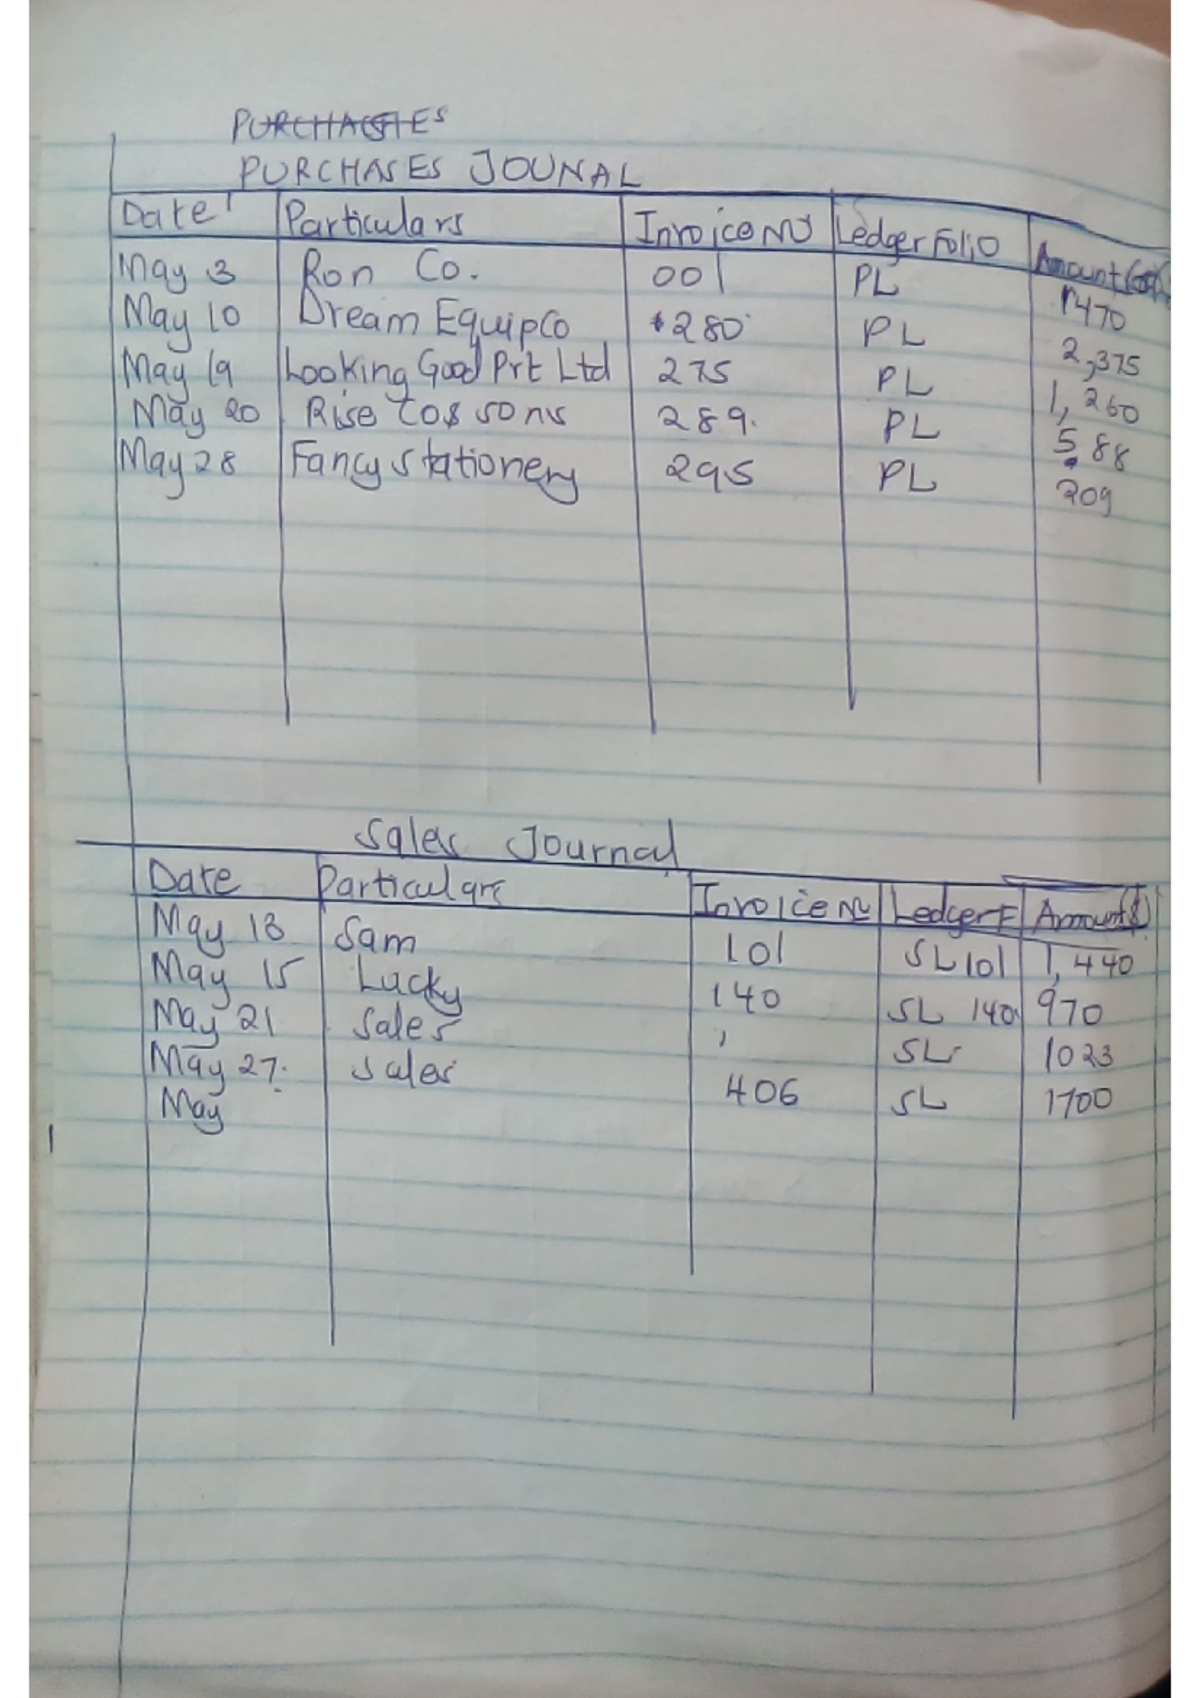 PURCHASES
PURCHASES JOUNAL
Date Particulars Invoice No Ledger Folio Amount
May 3 Ron Co. 001 PL 1470
May 10 Dream EquipCo 280 PL 2,375
May 19 Looking Good Prt Ltd 275 PL 1,260
May 20 Rise Co & sons 289. PL 588
May 28 Fancy stationery 295 PL 209
Sales Journal
Date Particulars Invoice No Ledger F Amount($)
May 13 Sam 101 SL 101 1,440
May 15 Lucky 140 SL 140 970
May 21 Sales SL 1023
May 27. Sales 406 SL 1700
May